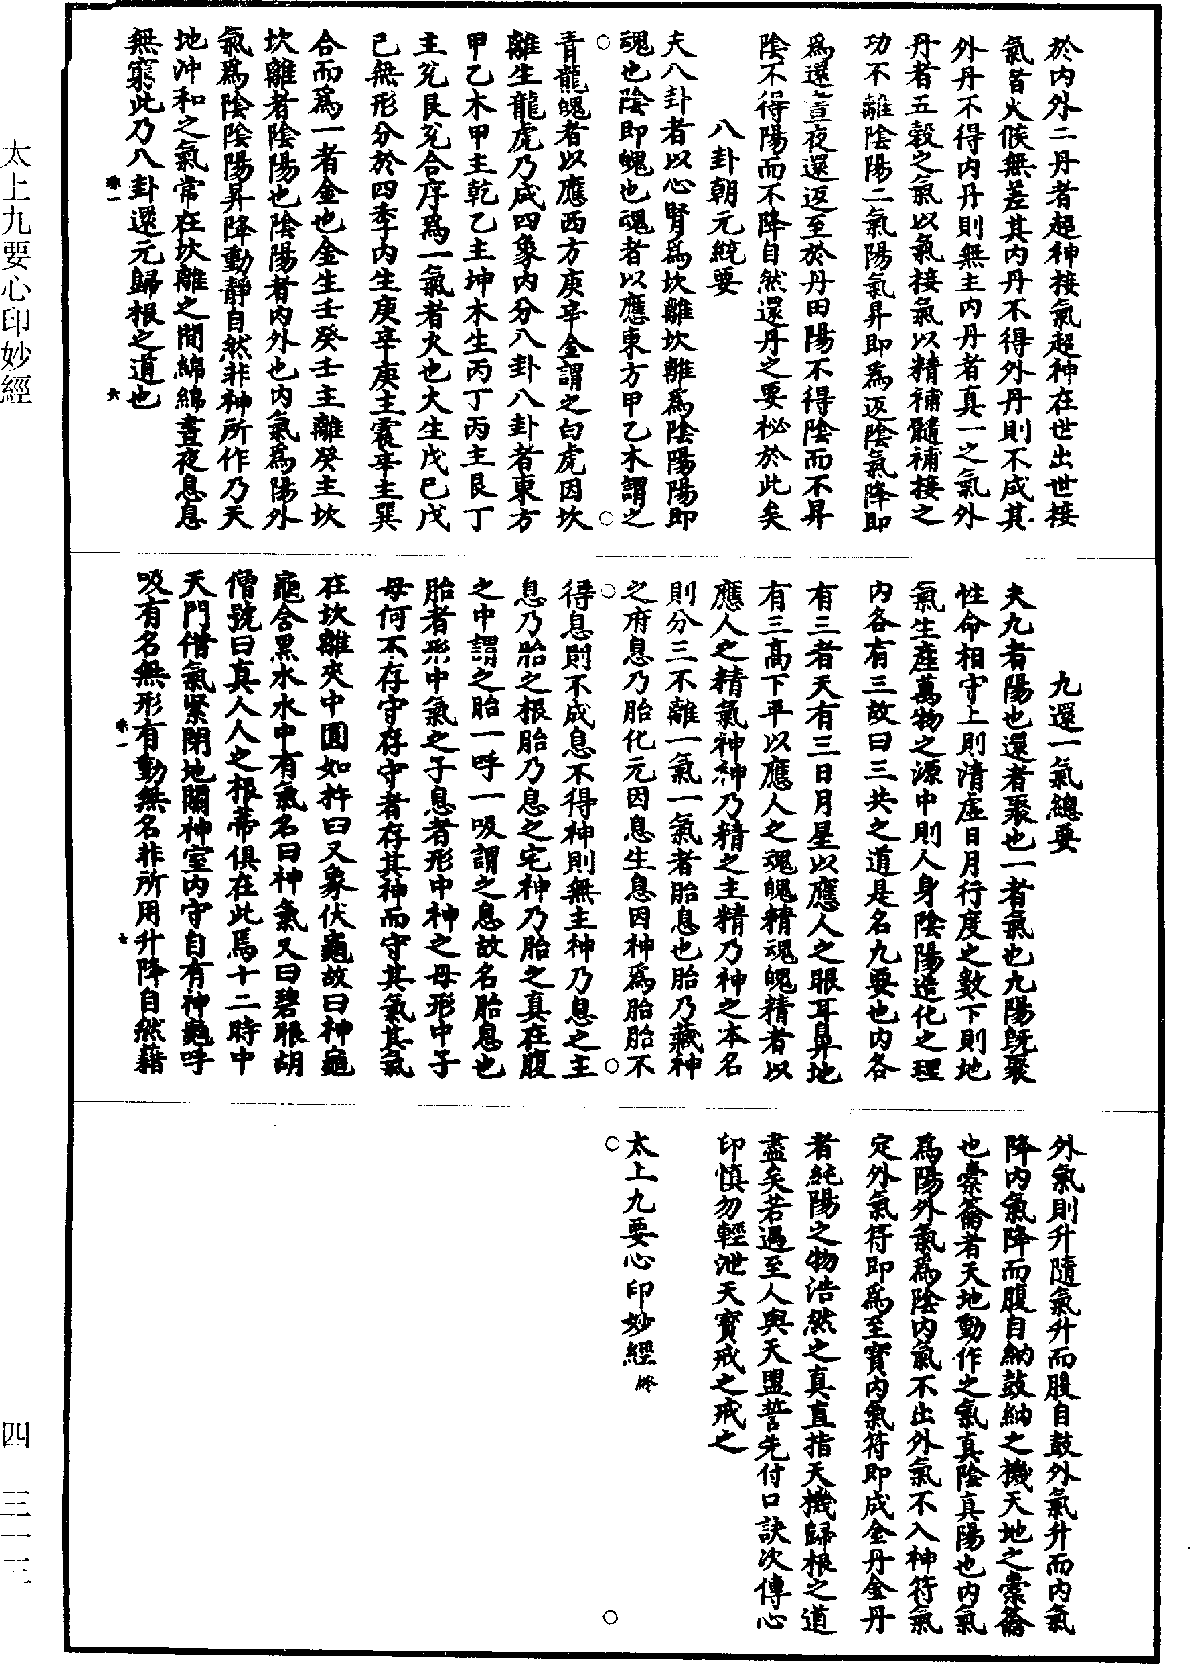 於內外二丹者超神接氣超神在世出世接
氣皆火候無差其內丹不得外丹則不成其
外丹不得內丹則無主內丹者真一之氣外
丹者五穀之氣以氣接氣以精補髓補接之
功不離陰陽二氣陽氣昇即為返陰氣降即
為還晝夜還返至於丹田陽不得陰而不昇
陰不得陽而不降自然還丹之要祕於此矣
八卦朝元統要
夫八卦者以心腎為坎離坎離為陰陽陽即
魂也陰即魄也魂者以應東方甲乙木謂之
青龍魄者以應西方庚辛金謂之白虎因坎
離生龍虎乃成四象內分八卦八卦者東方
甲乙木甲主乾乙主坤木生丙丁丙主艮丁
主兌艮兌合序為一氣者火也火生戊己戊
己無形分於四季內生庚辛庚主震辛主巽
合而為一者金也金生壬癸壬主離癸主坎
坎離者陰陽也陰陽者內外也內氣為陽外
氣為陰陰陽昇降動靜自然非神所作乃天
地沖和之氣常在坎離之間綿綿晝夜息息
無窮此乃八卦還元歸根之道也
九還一氣總要
夫九者陽也還者聚也一者氣也九陽既聚
性命相守上則清虛日月行度之數下則地
氣生產萬物之源中則人身陰陽造化之理
內各有三故曰三共之道是名九要也內各
有三者天有三日月星以應人之眼耳鼻地
有三高下平以應人之魂魄精魂魄精者以
應人之精氣神神乃精之主精乃神之本名
則分三不離一氣一氣者胎息也胎乃藏神
之府息乃胎化元因息生息因神為胎胎不
得息則不成息不得神則無主神乃息之主
息乃胎之根胎乃息之宅神乃胎之真在腹
之中謂之胎一呼一吸謂之息故名胎息也
胎者形中氣之子息者形中神之母形中子
母何不存守存守者存其神而守其氣其氣
在坎離夾中圓如杵臼又象伏龜故曰神龜
龜含黑水水中有氣名曰神氣又曰碧眼胡
僧號曰真人人之根蒂俱在此焉十二時中
天門借氣緊閉地關神室內守自有神龜呼
吸有名無形有動無名非所用升降自然藉
外氣則升隨氣升而腹自鼓外氣升而內氣
降內氣降而腹自納鼓納之機天地之橐籥
也橐籥者天地動作之氣真陰真陽也內氣
為陽外氣為陰內氣不出外氣不入神符氣
定外氣符即為至寶內氣符即成金丹金丹
者純陽之物浩然之真直指天機歸根之道
盡矣若遇至人與天盟誓先付口訣次傳心
印慎勿輕泄天寶戒之戒之
太上九要心印妙經 終
太上九要心印妙經
四 三一三